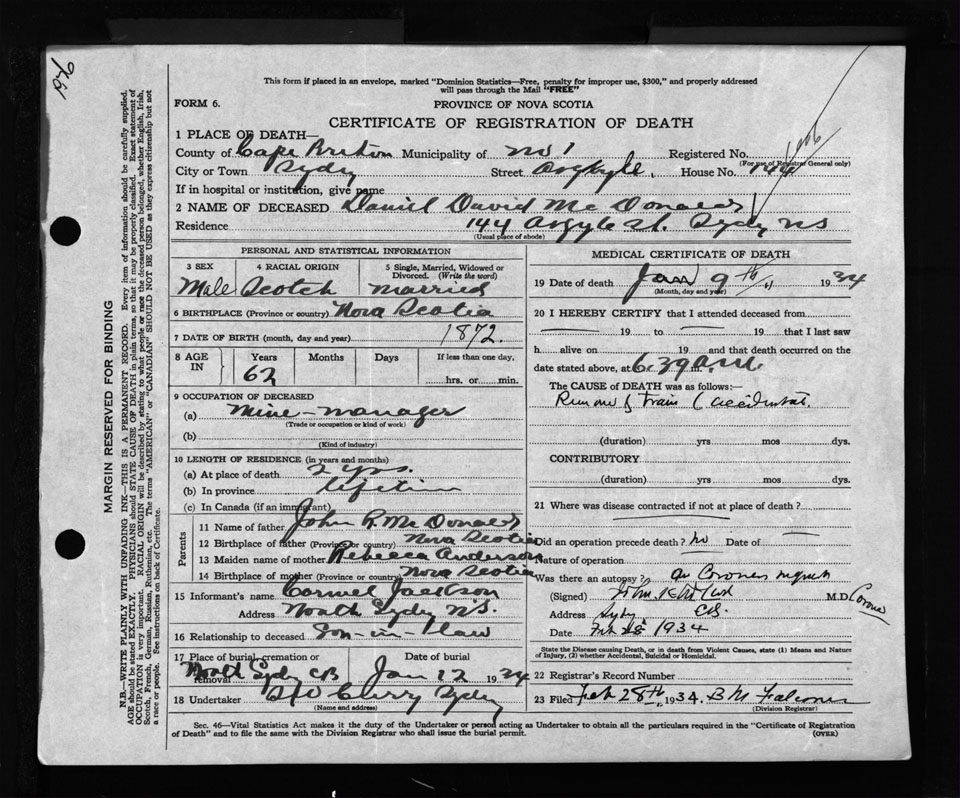 This form if placed in an envelope, marked "Dominion Statistics—Free, penalty for improper use, $300," and properly addressed
will pass through the Mail "FREE"
FORM 6.
PROVINCE OF NOVA SCOTIA
CERTIFICATE OF REGISTRATION OF DEATH
1 PLACE OF DEATH—
County of Cape Breton Municipality of No 1 Registered No.
(For use of Registrar General only)
City or Town Sydy Street Argyle, House No. 144
If in hospital or institution, give name
2 NAME OF DECEASED Daniel David McDonald
Residence 144 Argyle St. Sydy NS
(Usual place of abode)
PERSONAL AND STATISTICAL INFORMATION
3 SEX Male
4 RACIAL ORIGIN Scotch
5 Single, Married, Widowed or Divorced. (Write the word) Married
6 BIRTHPLACE (Province or country) Nova Scotia
7 DATE OF BIRTH (month, day and year) 1872.
8 AGE IN Years 62 Months Days If less than one day, hrs. or min.
9 OCCUPATION OF DECEASED
(a) Mine-manager
(Trade or occupation or kind of work)
(b)
(Kind of industry)
10 LENGTH OF RESIDENCE (in years and months)
(a) At place of death 2 yrs.
(b) In province lifetime
(c) In Canada (if an immigrant)
Parents
11 Name of father John R. McDonald
12 Birthplace of father (Province or country) Nova Scotia
13 Maiden name of mother Rebecca Anderson
14 Birthplace of mother (Province or country) Nova Scotia
15 Informant's name Jackson
Address North Sydy N.S.
16 Relationship to deceased Son-in-law
17 Place of burial, cremation or removal North Sydy CB Date of burial Jan 12 1934
18 Undertaker Curry Sydy
(Name and address)
MEDICAL CERTIFICATE OF DEATH
19 Date of death Jan 9th 1934
(Month, day and year)
20 I HEREBY CERTIFY that I attended deceased from
19 to 19 that I last saw
h alive on 19 and that death occurred on the
date stated above, at 6.39 a.m.
The CAUSE of DEATH was as follows:—
Run over by Train (accidental.
(duration) yrs mos dys.
CONTRIBUTORY
(duration) yrs mos dys.
21 Where was disease contracted if not at place of death?
Did an operation precede death? No Date of
Nature of operation
Was there an autopsy? Coroners inquest
(Signed) M.D. Coroner
Address Sydy CB
Date 1934
State the Disease causing Death, or in death from Violent Causes, state (1) Means and Nature
of Injury, (2) whether Accidental, Suicidal or Homicidal.
22 Registrar's Record Number
23 Filed Feb 28th, 1934. B M Falconer
(Division Registrar)
Sec. 46—Vital Statistics Act makes it the duty of the Undertaker or person acting as Undertaker to obtain all the particulars required in the "Certificate of Registration
of Death" and to file the same with the Division Registrar who shall issue the burial permit.
(OVER)
MARGIN RESERVED FOR BINDING
N.B.—WRITE PLAINLY WITH UNFADING INK—THIS IS A PERMANENT RECORD. Every item of information should be carefully supplied.
AGE should be stated EXACTLY. PHYSICIANS should STATE CAUSE OF DEATH in plain terms, so that it may be properly classified. Exact statement of
OCCUPATION is very important. RACIAL ORIGIN will be described by stating to what people or race the deceased person belonged, whether English, Irish,
Scotch, French, German, Russian, Ruthenian, etc. The terms "AMERICAN" or "CANADIAN" SHOULD NOT BE USED as they express citizenship but not
a race or people. See instructions on back of Certificate.